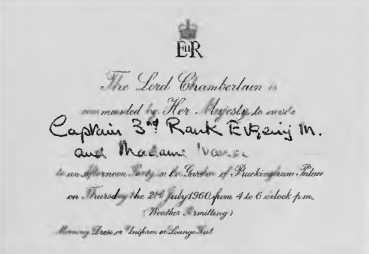 EIIR
The Lord Chamberlain is
commanded by Her Majesty to invite
Captain 3rd Rank Evgenij M.
and Madame
to an Afternoon Party in the Garden of Buckingham Palace
on Thursday the 21st July 1960 from 4 to 6 o'clock p.m.
(Weather Permitting)
Morning Dress or Uniform or Lounge Suit